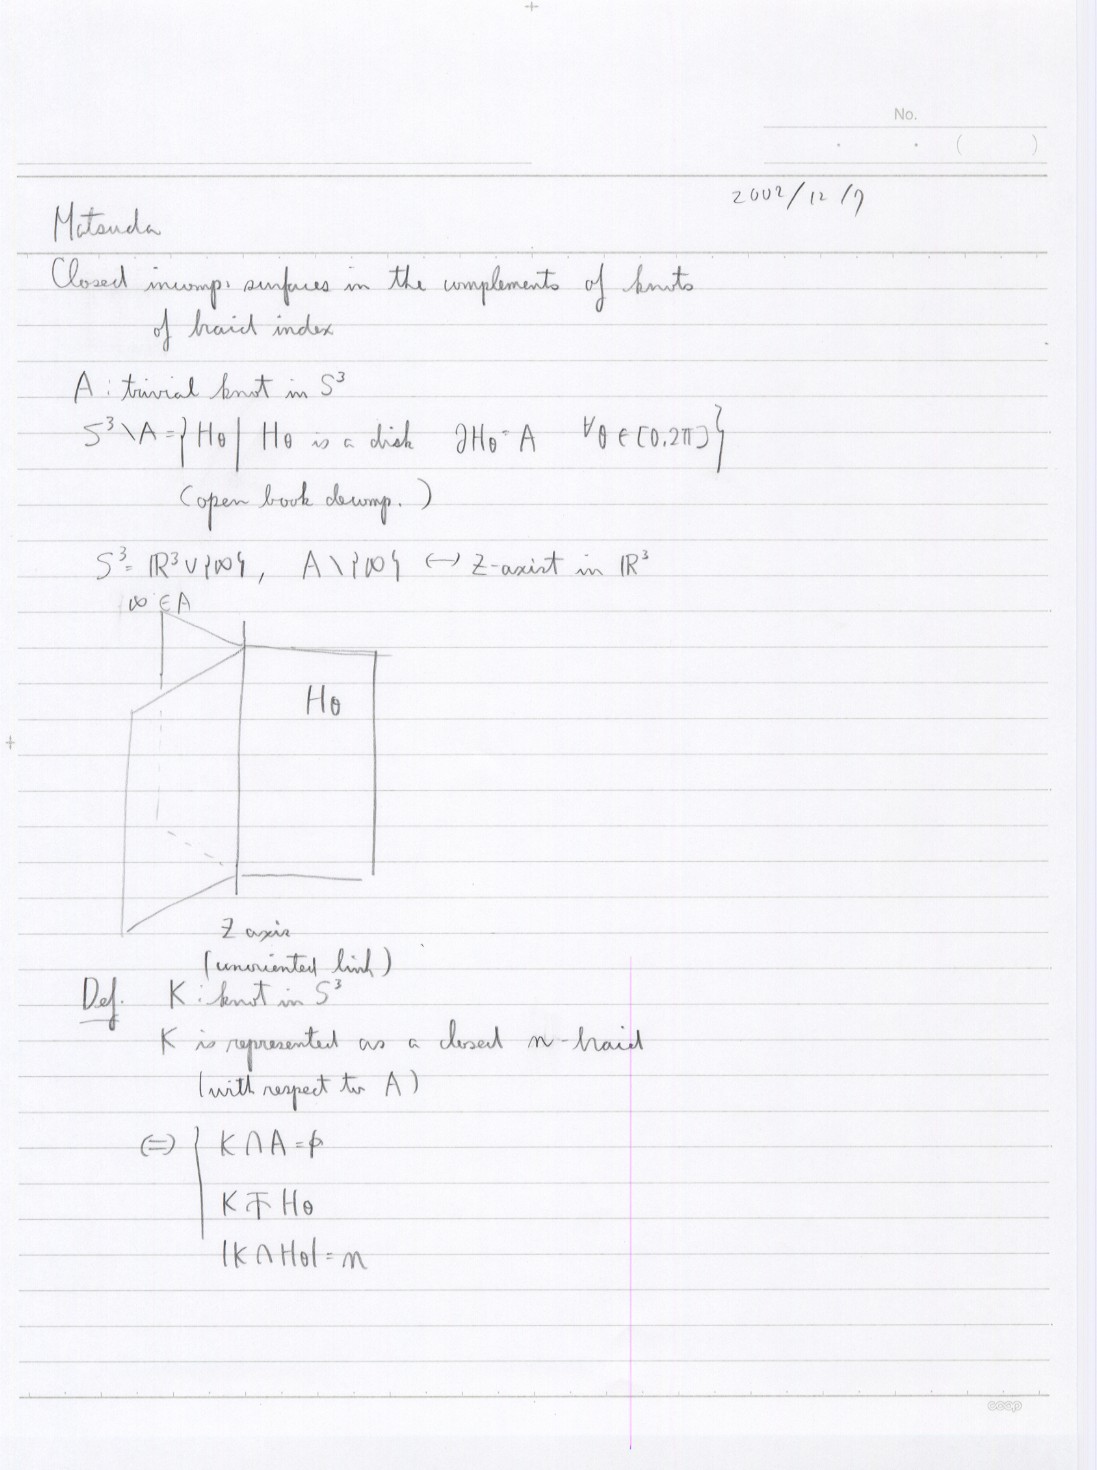 No.
( )
2002/12/7
Matsuda
Closed incomp. surfaces in the complements of knots
of braid index
A : trivial knot in S³
S³\A = {Hθ | Hθ is a disk ∂Hθ = A ∀θ∈[0,2π]}
(open book decomp.)
S³ = ℝ³∪{∞}, A\{∞} ↔ Z-axist in ℝ³
∞∈A
Hθ
Z axis
(unoriented link)
Def. K : knot in S³
K is represented as a closed n-braid
(with respect to A)
⇔ { K∩A=φ
K⋔Hθ
|K∩Hθ|=n
coop